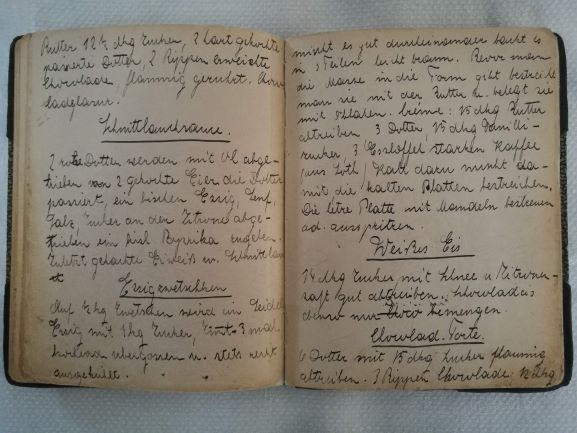 Butter 12½ dkg Zucker, 2 hart gekochte
passierte Dotter, 2 Rippen erweichte
Chocolade flaumig gerührt. Choco
ladglasur.
Schnittlauchsauce.
2 rohe Dotter werden mit Öl abge-
trieben von 2 gekochte Eier die Dotter
passiert, ein bischen Essig, Senf,
Salz, Zucker an der Zitrone abge-
trieben ein biel Papprika zugeben.
Zuletzt gehackte Eiweiß u. Schnittlau
Essigzwetschken
Auf ½ kg Zwetschken wird ein Seidel
Essig mit 1 kg Zucker, 3 mal
übergossen u. stets recht
ausgekühlt.
mischt es gut durcheinander backt es
in 3 Teilen leicht braun. Bevor man
die Masse in die Form gibt bestreicht
man sie mit der Butter u. belegt sie
mit Obladen. Creme: 15 dkg Butter
abtreiben 3 Dotter, 15 dkg Vanilli-
zucker 3 Esslöffel starken Kaffee
(aus Loth) Kalt daru mischt da-
mit die kalten Platten bestreichen.
Die letzte Platte mit Mandeln bestreuen
od. ausspritzen.
Weißes Eis
14 dkg Zucker mit Schnee u Zitronen-
saft gut abtreiben. Chocoladeis
ebenso nur Choco beimengen.
Chocolad. Torte.
6 Dotter mit 15 dkg Zucker flaumig
abtreiben. 3 Rippen Chocolade 12 dkg